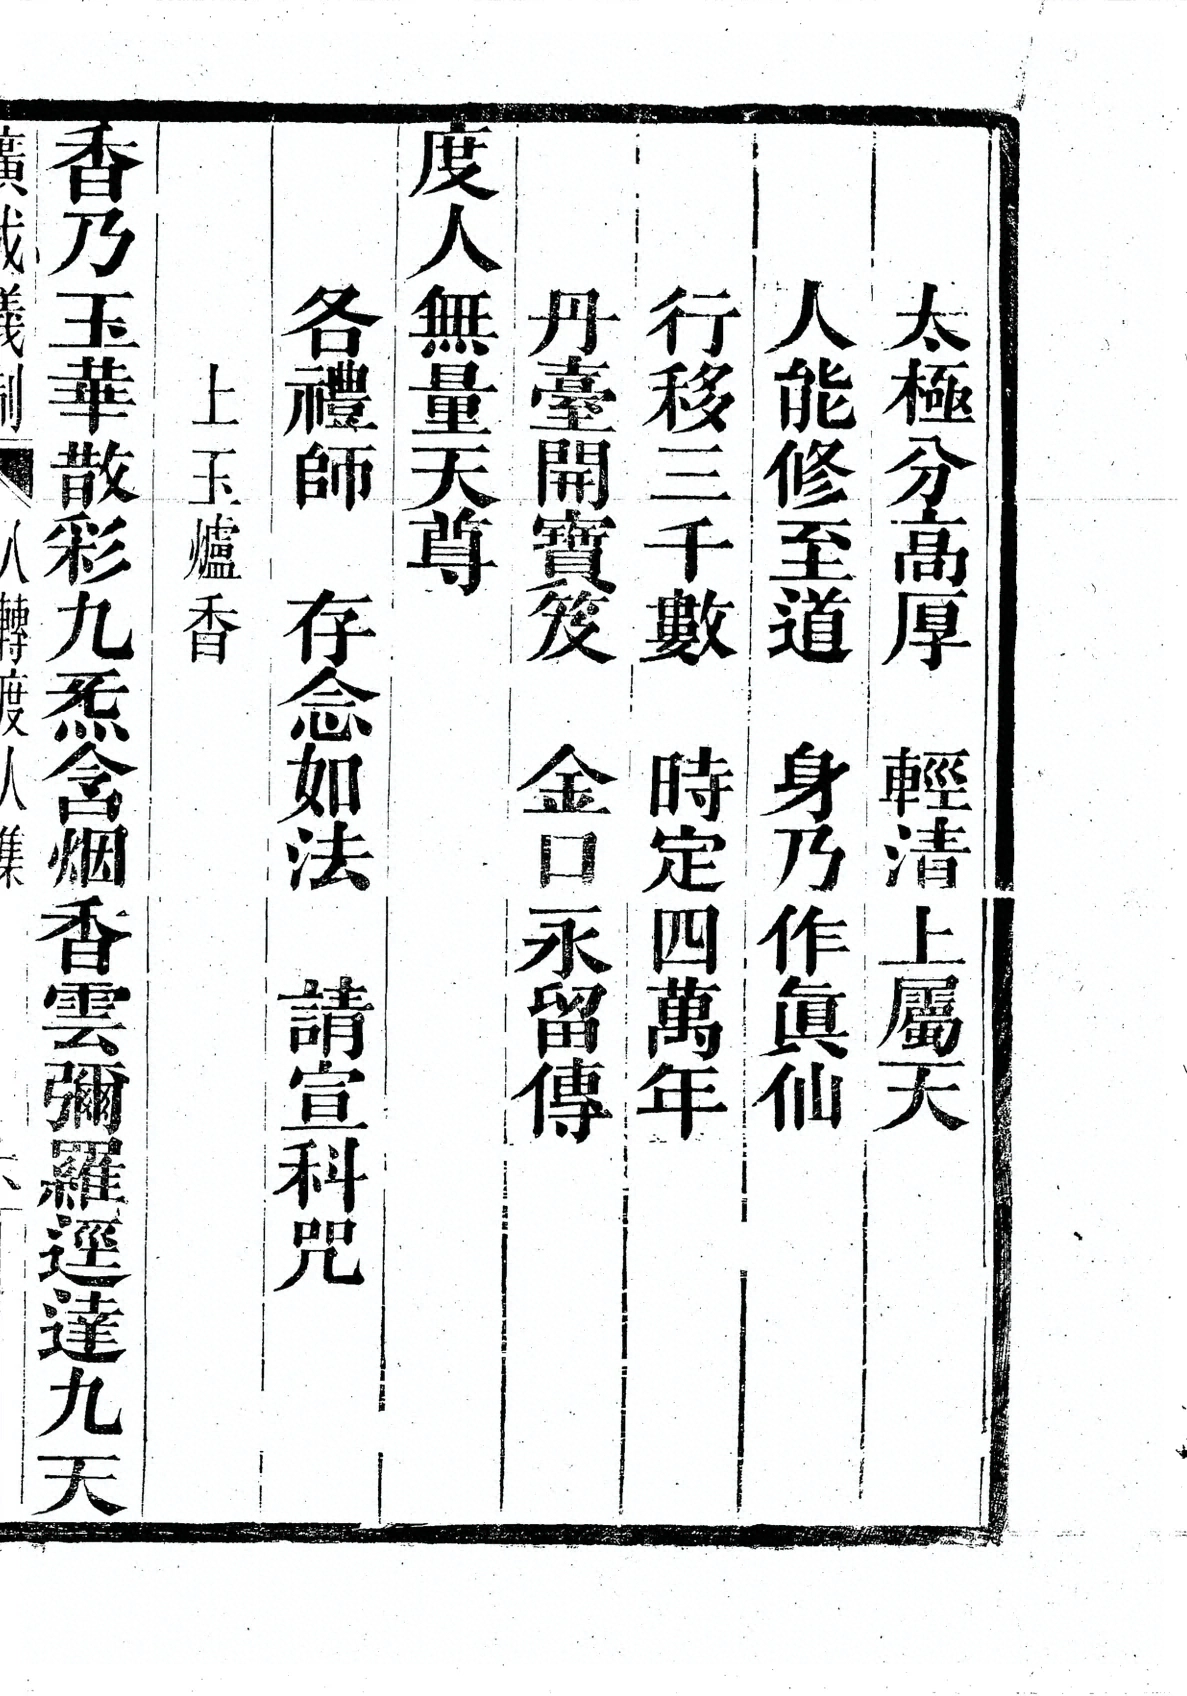 太極分高厚　輕清上屬天
人能修至道　身乃作眞仙
行移三千數　時定四萬年
丹臺開寶笈　金口永留傳
度人無量天尊
各禮師　存念如法　請宣科咒
上玉爐香
香乃玉華散彩九炁含烟香雲彌羅逕達九天
廣成儀制　八轉度人集